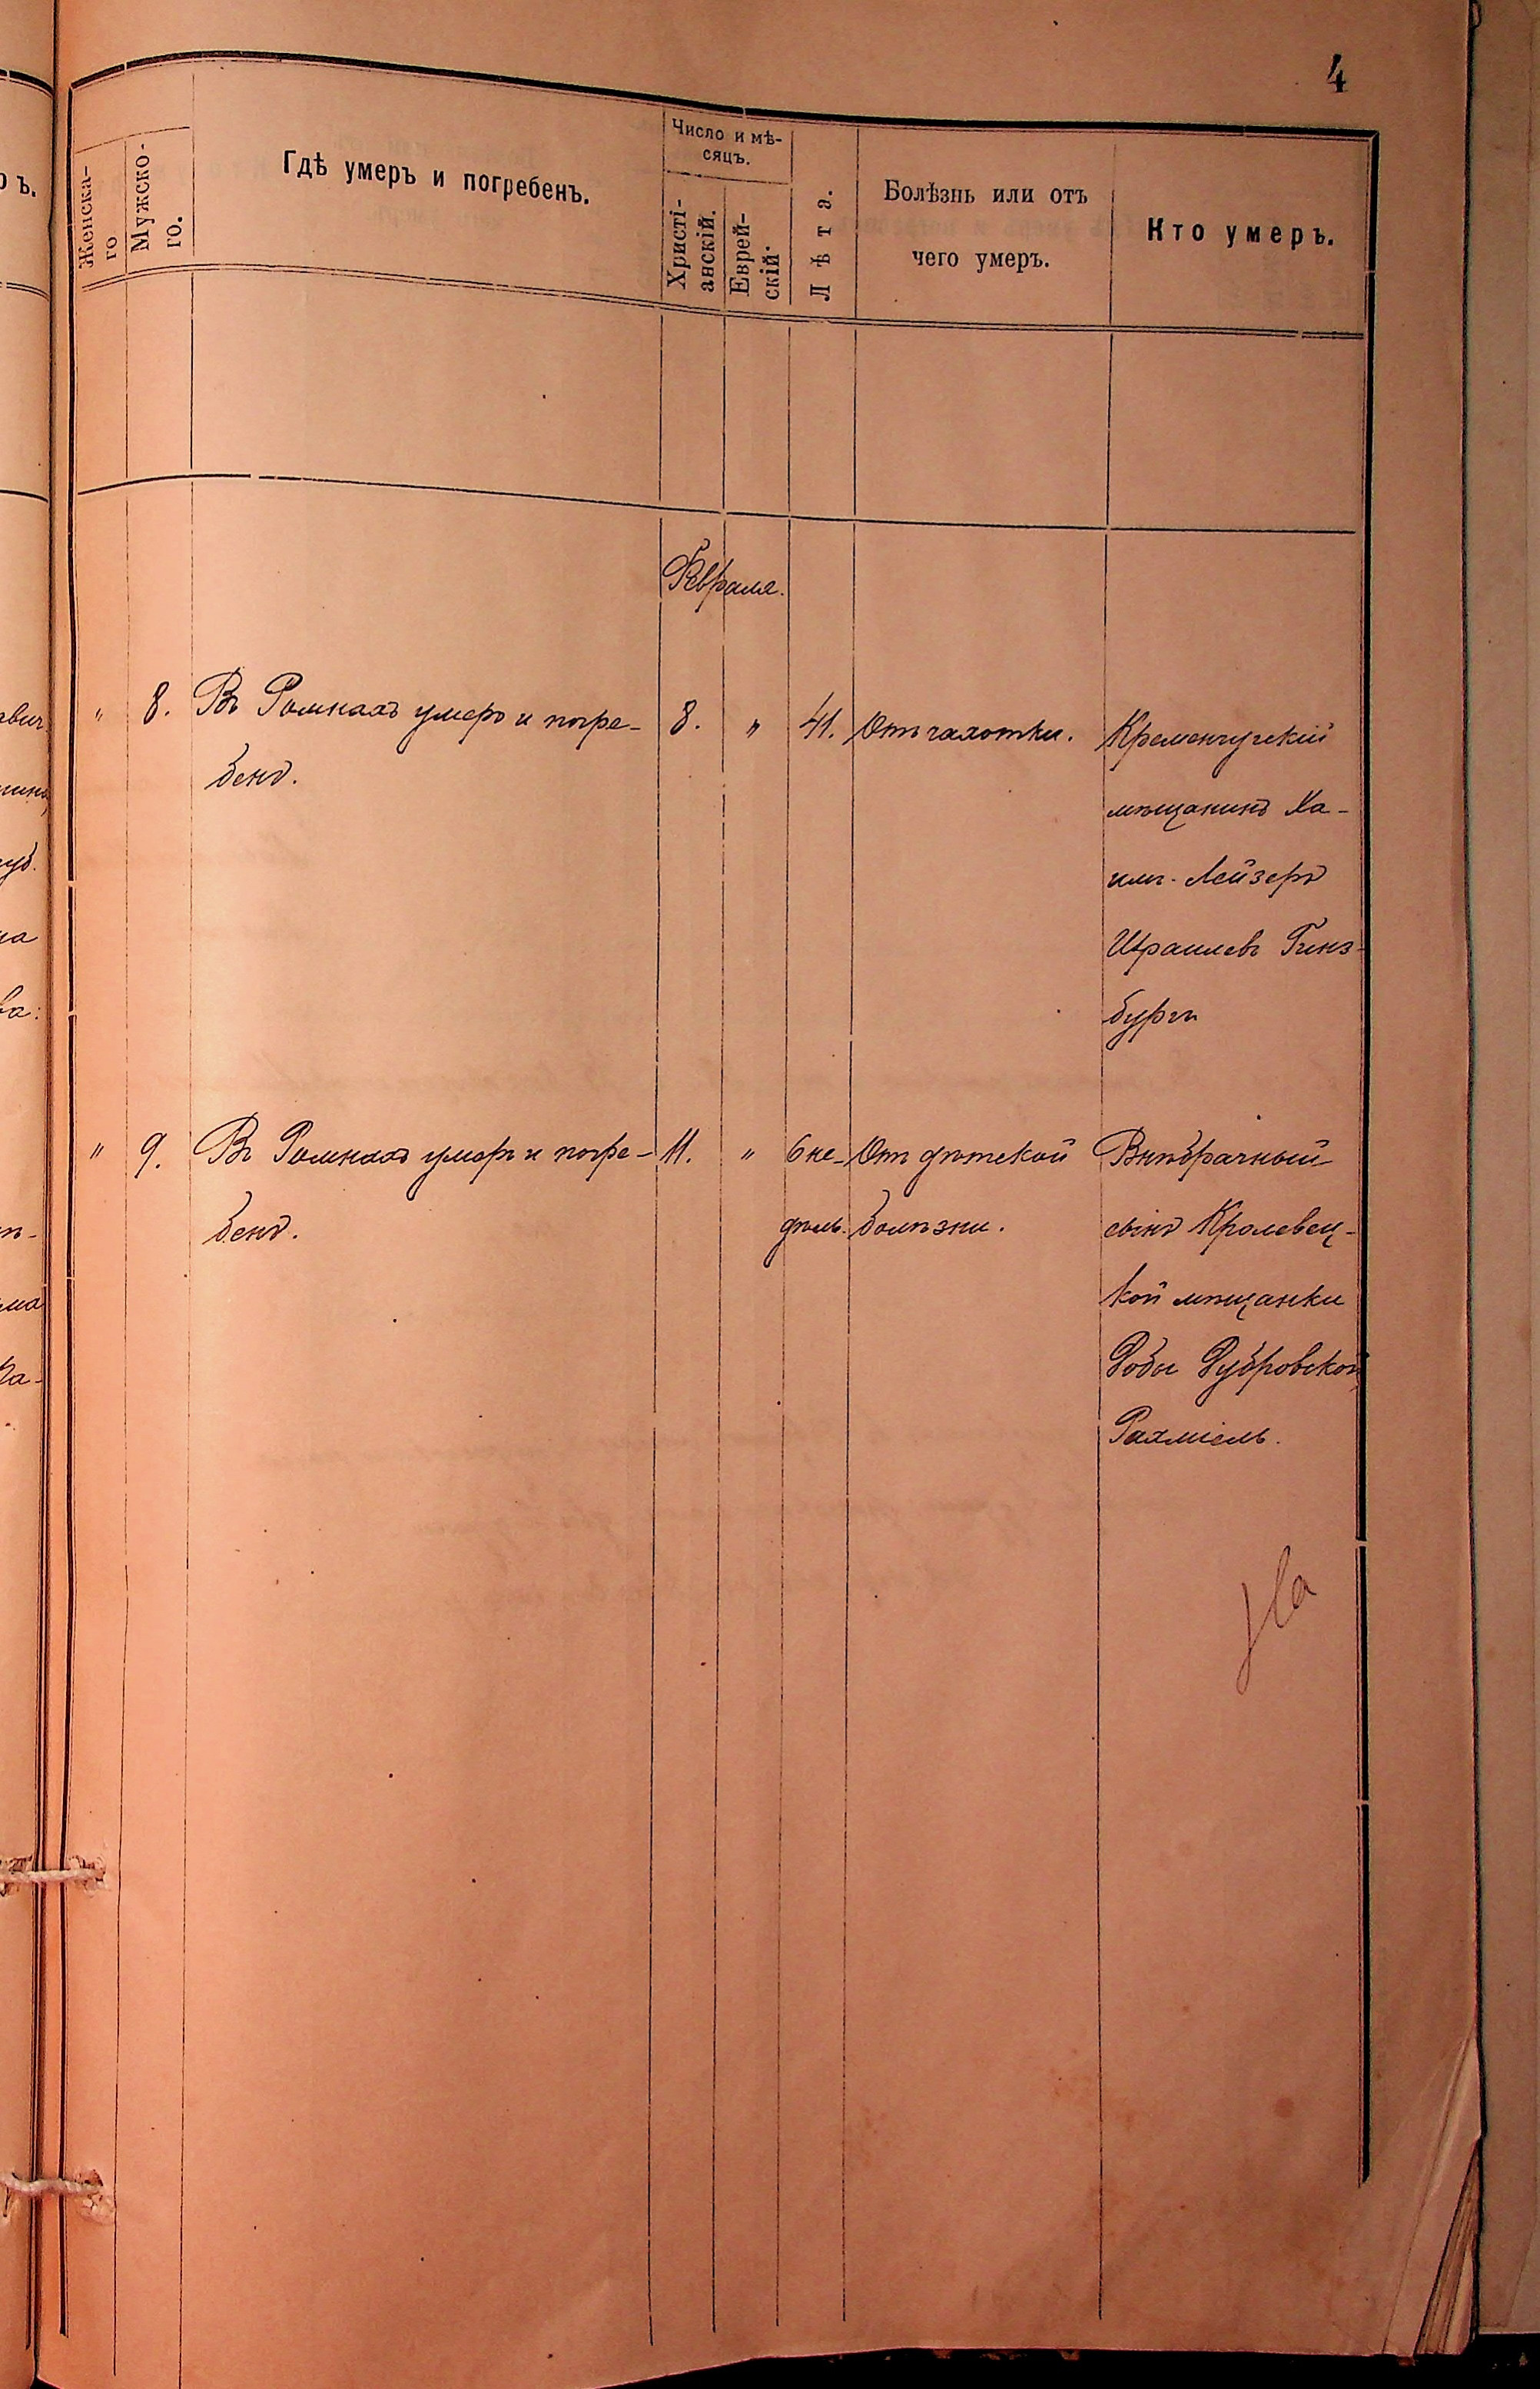 4
Женска-
го
Мужско-
го.
Гдѣ умеръ и погребенъ.
Число и мѣ-
сяцъ.
Христі-
анскій.
Еврей-
скій.
Лѣта.
Болѣзнь или отъ
чего умеръ.
Кто умеръ.
Февраля.
" 8. Въ Ромнахъ умеръ и погре- 8. " 41. Отъ чахотки. Кременчугскій
бенъ. мѣщанинъ Ха-
имъ-Лейзеръ
Израилевъ Гинз-
бургъ
" 9. Въ Ромнахъ умеръ и погре- 11. " 6 не- Отъ дѣтской Внѣбрачный
бенъ. дѣль. болѣзни. сынъ Кролевец-
кой мѣщанки
Добы Дубровской
Рахміель.
На